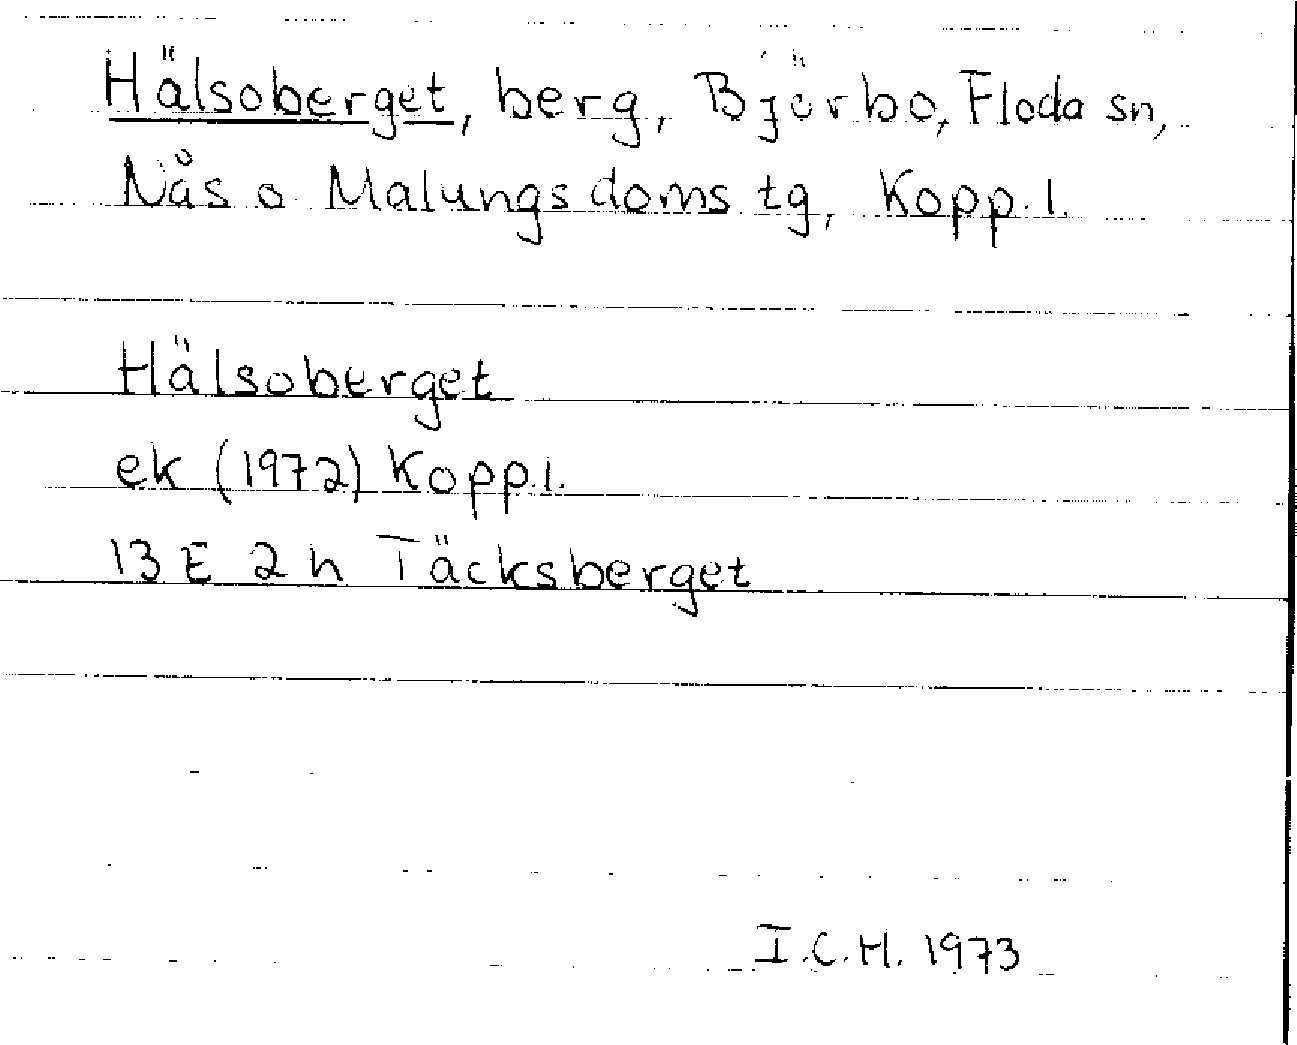 Hälsoberget, berg, Björbo, Floda sn,
Nås o Malungs doms tg, Kopp. l.
Hälsoberget
ek (1972) Kopp.l.
13 E 2 h Täcksberget
I.C.H. 1973